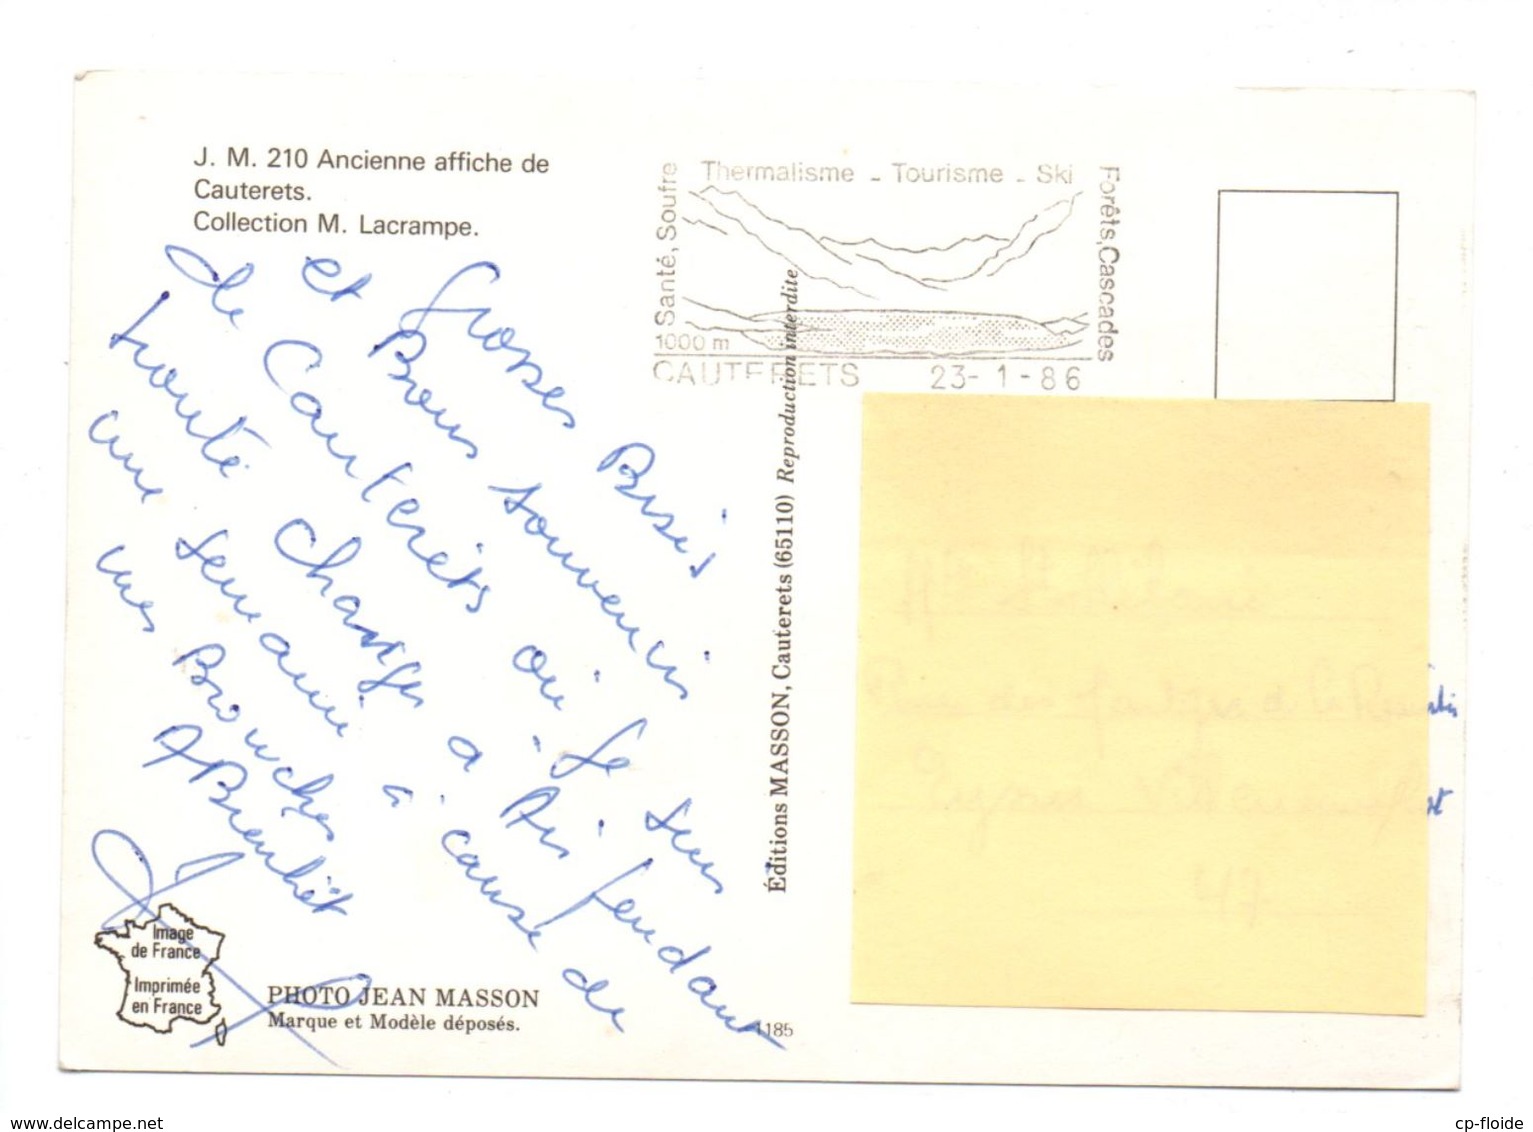 J. M. 210 Ancienne affiche de
Cauterets.
Collection M. Lacrampe.
Santé, Soufre
Thermalisme - Tourisme - Ski
Forêts, Cascades
1000 m
CAUTERETS 23-1-86
et grosses Bisis
Bons souvenis
de Cauterêts où je suis
monté changer a Air pendant
une semaine à cause de
mes Bronches
A Bientôt
Éditions MASSON, Cauterets (65110) Reproduction interdite
Image
de France
Imprimée
en France
PHOTO JEAN MASSON
Marque et Modèle déposés.
1185
www.delcampe.net
cp-floide